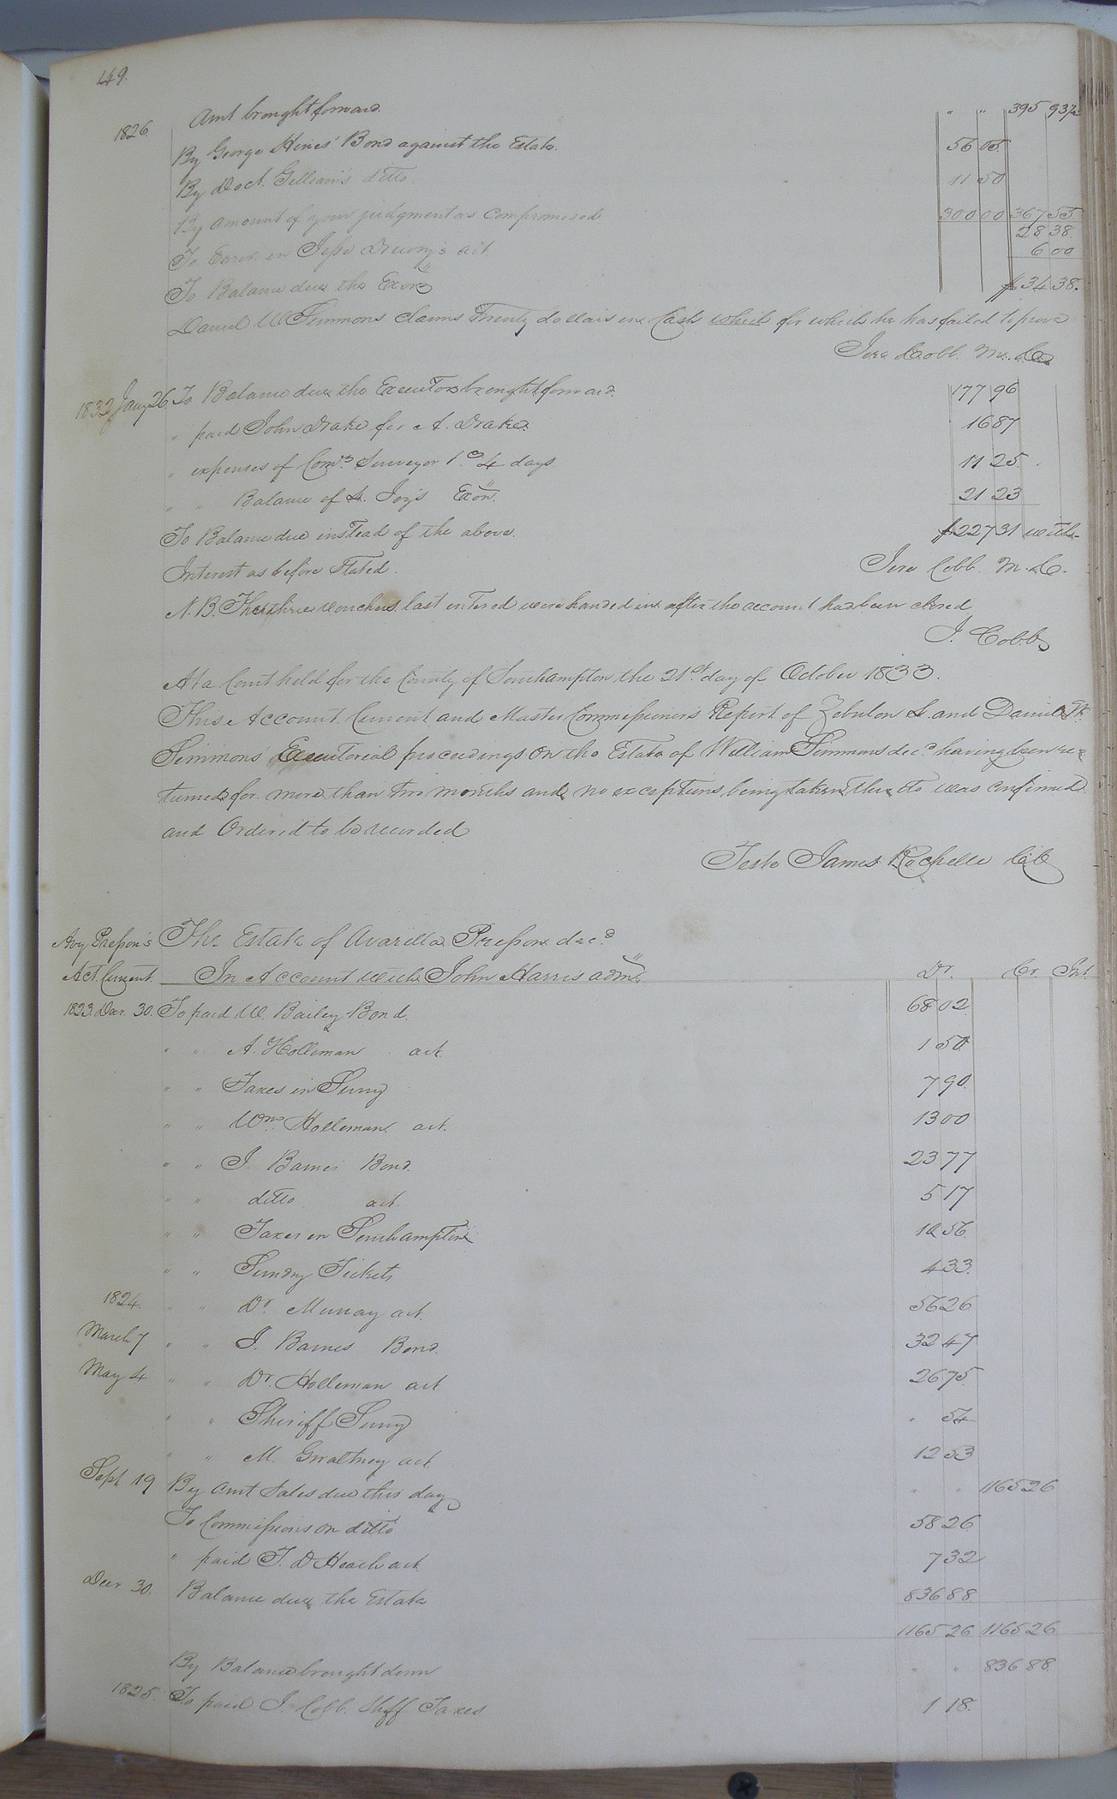 449.
Amt brought forward " " 395 93½
1826 By George Hines' Bond against the Estate. 56 05
By Doct. Gilliam's ditto 11 50
By amount of your judgment as compromised 300 00 367 55
28 38.
To Error in Jesse Drewry's act 6 00
To Balance due the Exors $34 38.
Daniel W Simmons claims Twenty dollars in Cash which for which he has failed to prove
Jere Cobb M. Co
1832 Jany 26 To Balance due the Executors brought forward 177 96
" paid John Drake for A. Drake 16 87
" expenses of Comrs Surveyor &c 4 days 11 25
" " Balance of Exon. 21 23
To Balance due instead of the above. $227 31 with
Interest as before Stated. Jere Cobb M. C.
N. B. The three vouchers last entered were handed in after the account had been closed
J. Cobb
At a Court held for the County of Southampton the 21st day of October 1833.
This Account Current and Master Commissioner's Report of Zebulon S. and Daniel W.
Simmons' Executorial proceedings on the Estate of William Simmons decd having been re-
turned for more than two months and no exceptions being taken thereto was confirmed
and Ordered to be recorded
Teste James Rochelle Clk
Avy Presson's The Estate of Avarilla Presson decd
Act. Current In Account with John Harris admr Dr. Cr Int.
1823 Decr. 30. To paid W. Bailey Bond. 68 02
" " A. Holleman act 1 50
" " Taxes in Surry 7 90
" " Wm. Holleman act. 13 00
" " J. Barnes Bond. 23 77
" " ditto act. 5 17
" " Taxes in Southampton 10 56
" " Sundry Tickets 4 33.
1824. " " Dr. Murray act. 56 26
March 7 " " J. Barnes Bond. 32 47
May 4 " " Dr. Holleman act 26 75
" " Sheriff Surry " 54
" " M. Gwaltney act 12 53
Sept 19 By amt Sales due this day " " 1165 26
To Commissions on ditto 58 26
" paid T. D Heath act 7 32
Decr 30. Balance due the Estate 836 88
1165 26 1165 26
By Balance brought down " " 836 88
1825. To paid J. Cobb Shff Taxes 1 18.